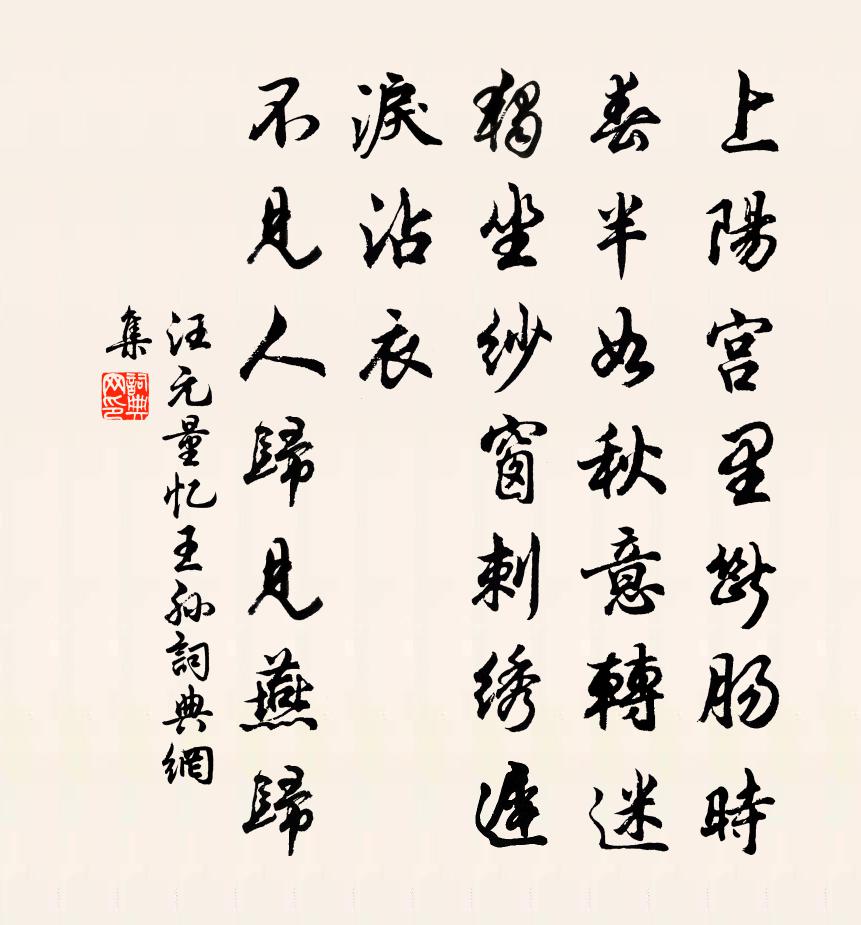 上陽宫里斷肠時
春半如秋意轉迷
獨坐紗窗刺绣遲
淚沾衣
不見人歸見燕歸
汪元量忆王孙詞典網
集
詞典
网印